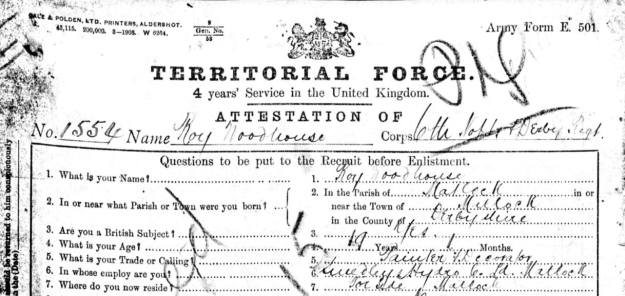 GALE & POLDEN, LTD. PRINTERS, ALDERSHOT.
45,115. 200,000. 3-1908. W 6264.
8
Gen. No.
53
Army Form E. 501.
TERRITORIAL FORCE.
4 years' Service in the United Kingdom.
ATTESTATION OF
No. 1554 Name Roy Woodhouse Corps 6th Notts & Derby Regt.
Questions to be put to the Recruit before Enlistment.
1. What is your Name? 1. Roy Woodhouse
2. In or near what Parish or Town were you born? 2. In the Parish of Matlock in or
near the Town of Matlock
in the County of Derbyshire
3. Are you a British Subject? 3. Yes.
4. What is your Age? Years Months.
5. What is your Trade or Calling? Painter Decorator
6. In whose employ are you? 6. Smedleys Hydro Co. Ld. Matlock
7. Where do you now reside? 7. Matlock
should be returned to him conspicuously
in the (Date)